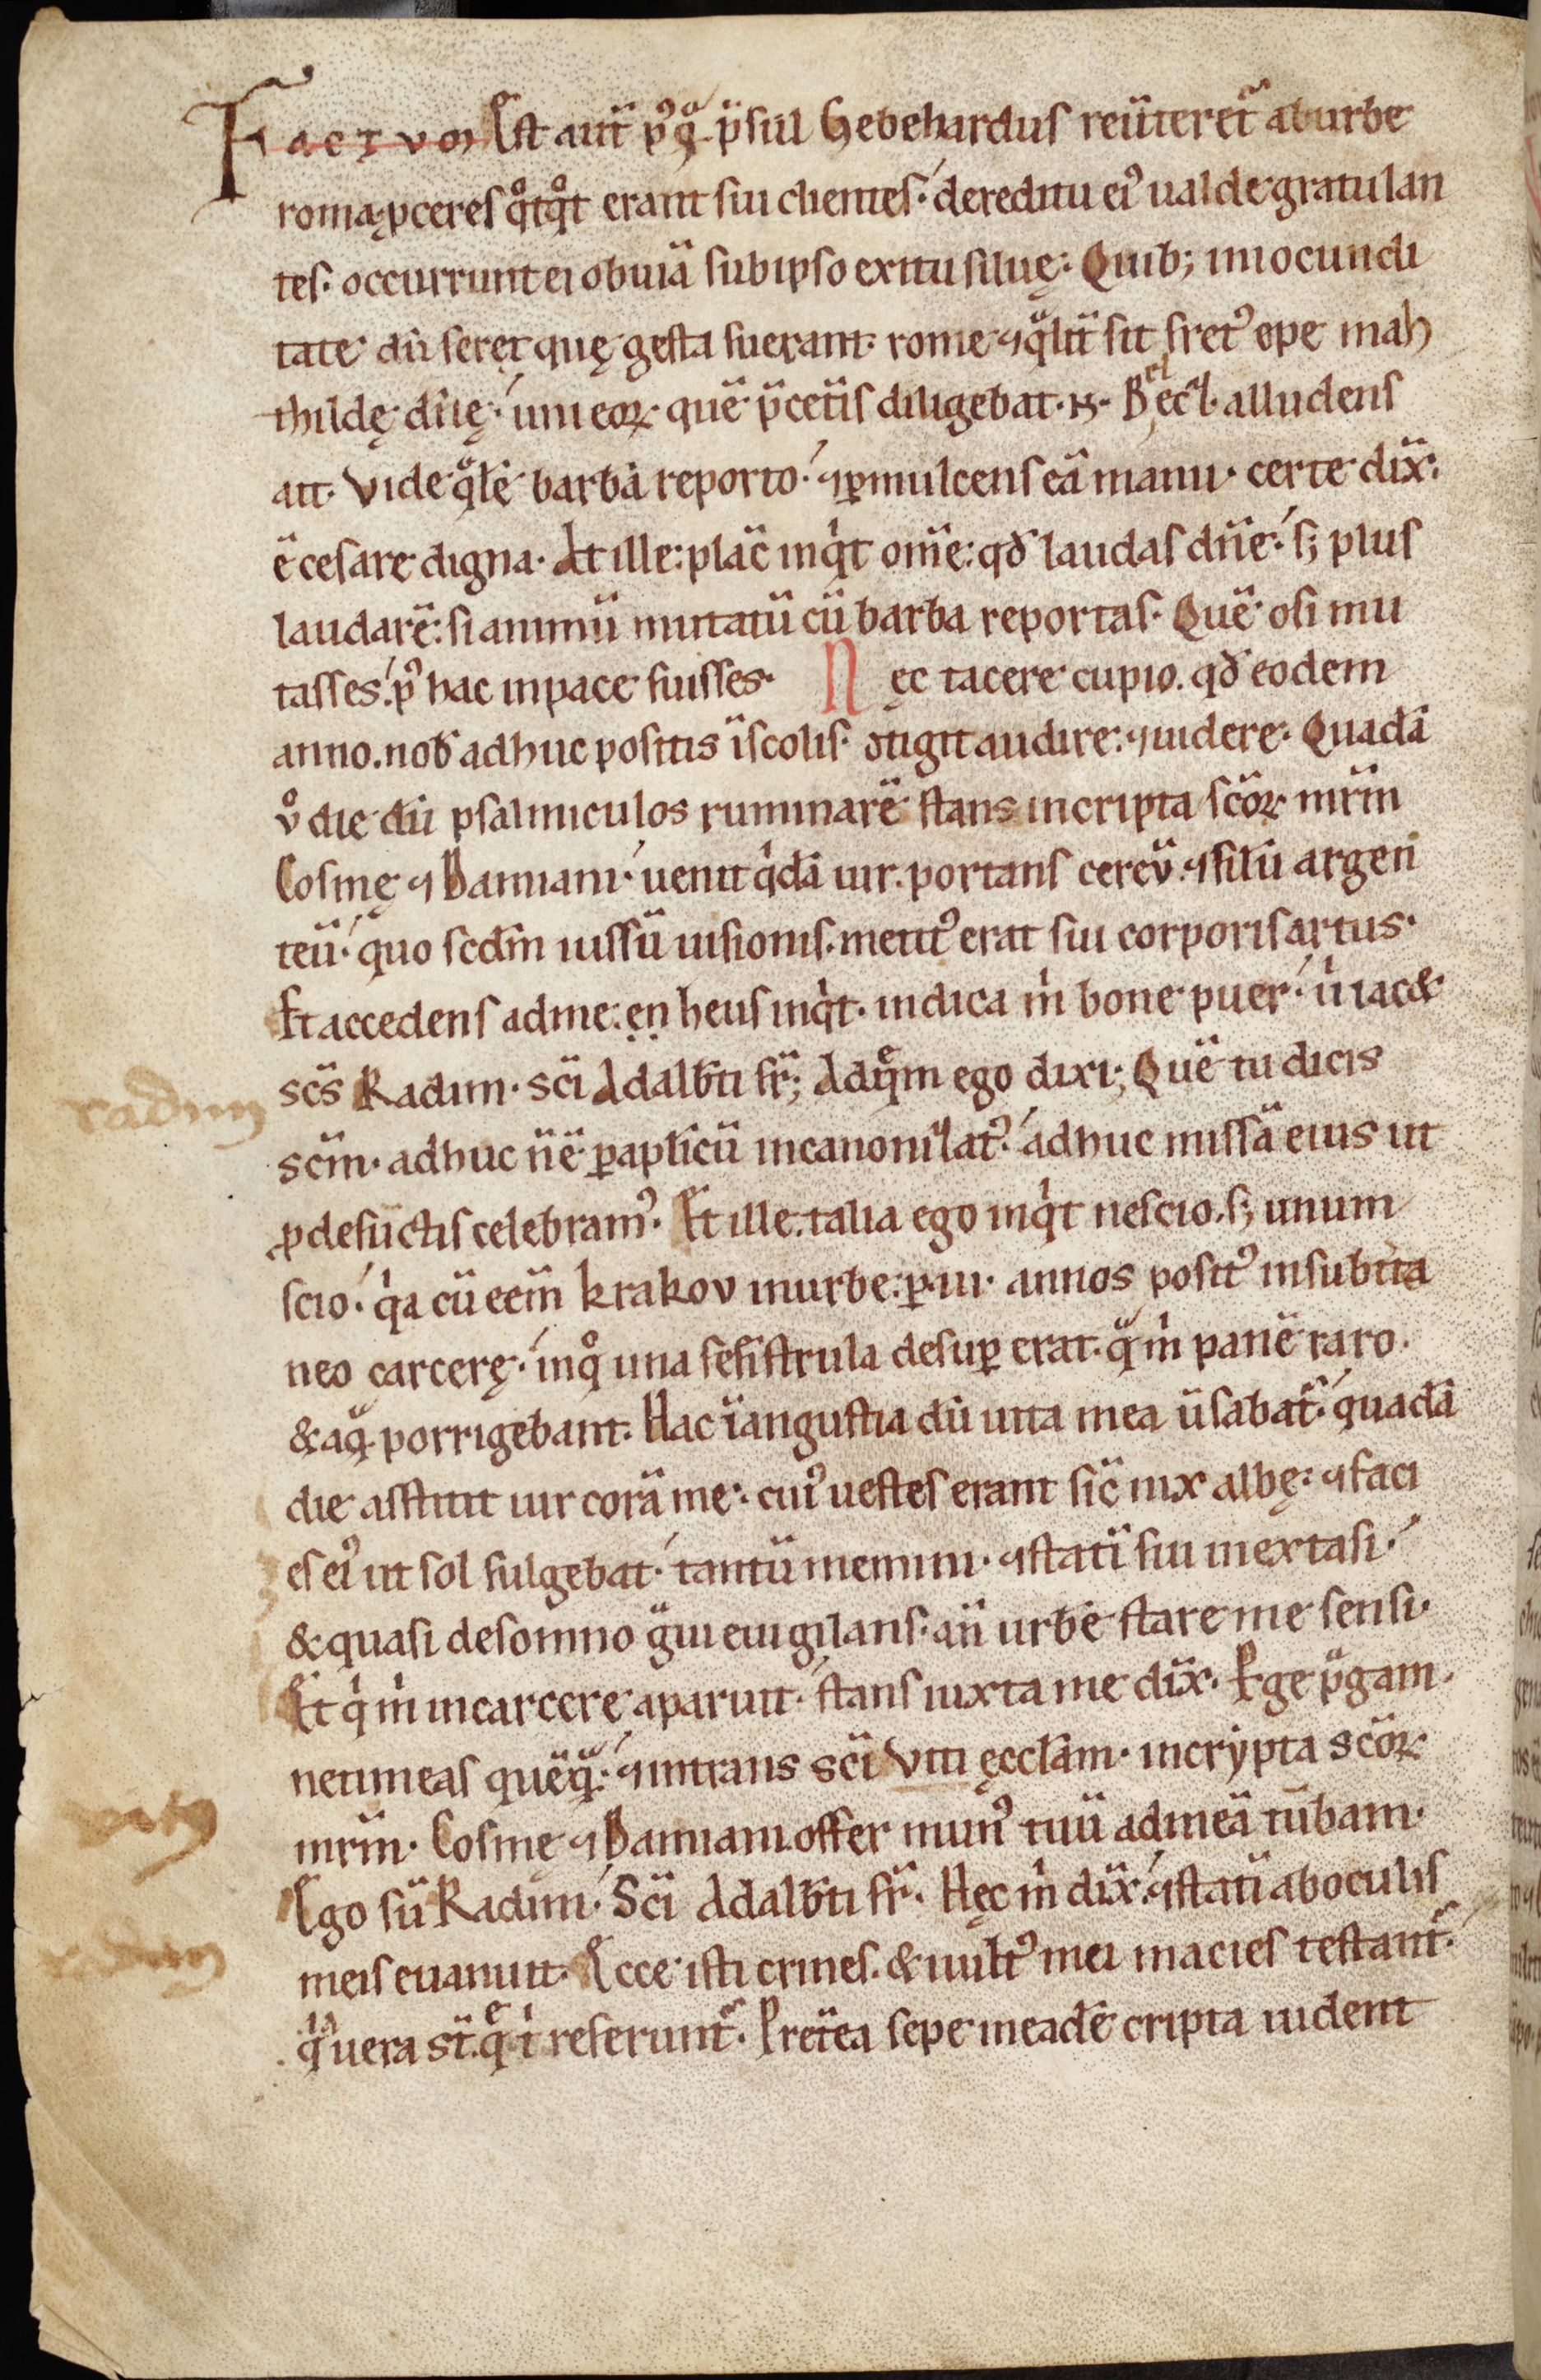 Factum Est aut̄ p᷒qͣ p̄sul Gebehardus reūteret᷑ ab urbe
roma, ꝓceres qͦtqͦt erant sui clientes. de reditu ei᷒ ualde gratulan
tes. occurrunt ei obuiā sub ipso exitu siluę. Quib; in iocundi
tate dū seret quę gesta fuerant rome ⁊ qͣlit̄ sit fret᷒ ope mah
thildę dn̄ę. uni eoꝝ quē p̄ cet̄is diligebat. N. Beleci. alludens
ait. Vide qͣlē barbā reporto. ⁊ ꝑmulcens eā manu. certe dix̄.
ē cesare digna. At ille: plac̄ inqⁱt om̄e: qđ laudas dn̄e. s; plus
laudarē: si animū mutatū cū barba reportas. Quē o si mu
tasses. p᷒ hac in pace fuisses. Nęc tacere cupio. qđ eodem
anno. nob̄ adhuc positis ī scolis. ↄtigit audire: ⁊ uidere. Quadā
uͦ die dū psalmiculos ruminarē stans in cripta sc̄oꝝ mr̄m
Cosmę ⁊ Damiani. uenit qⁱdā uir. portans cereū. ⁊ filū argen
teū. quo scdm̄ iussū uisionis. metit᷒ erat sui corporis artus.
Et accedens ad me: en heus inqⁱt. indica mⁱ bone puer. uⁱ iac&
sc̄s Radim. sc̄i Adalb̄ti fr̄; Ad quem ego dixi; Quē tu dicis
scm̄. adhuc n̄ ē ꝑ aplicū incanonizat᷒. adhuc missā eius ut
ꝓ defūctis celebram᷒. Et ille. talia ego inqⁱt nescio. s; unum
scio. qⁱa cū eēm krakov in urbe: ꝑ .iii. annos posit᷒ in subt̄ra
neo carcerę. in qͦ una fenēstrula desuꝑ erat. qͣ mⁱ panē raro
& aqͣ porrigebant. Hac ī angustia dū uita mea ūsabat᷑. quadā
die astitit uir corā me. cui᷒ uestes erant sic̄ nix albę: ⁊ faci
es ei᷒ ut sol fulgebat. tantū memini. ⁊ statī fui in extasi.
& quasi de somno gͣui euigilans. an̄ urbē stare me sensi.
Et qⁱ mⁱ in carcere aparuit. stans iuxta me dix̄. Perge pͣgam.
ne timeas quēqͣ. ⁊ intrans sc̄i Viti ęcclam̄. in crẏpta sc̄oꝝ
mr̄m. Cosmę ⁊ Damiani. offer mun᷒ tuū ad meā tūbam.
Ego sū Radim. Sc̄i Adalb̄ti fr̄. Hęc mⁱ dix̄. ⁊ statī ab oculis
meis euanuit. Ecce isti crines. & uult᷒ mei macies testant᷑.
qⁱa uera st̄. quę tⁱ referunt᷑. Pret̄ea sepe in eadē cripta uident
radim
vitg
radim